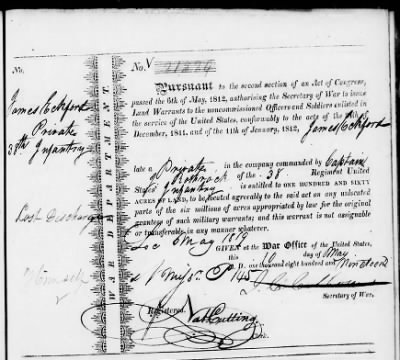 No.
James Eckford
Private
38th Infantry
Lost Discharge
WAR DEPARTMENT.
No.
Pursuant to the second section of an Act of Congress,
passed the 6th of May, 1812, authorising the Secretary of War to issue
Land Warrants to the noncommissioned Officers and Soldiers enlisted in
the service of the United States, conformably to the acts of the
December, 1811, and of the 11th of January, 1812, James Eckford
late a Private in the company commanded by Captain
of the 38 Regiment United
States Infantry is entitled to ONE HUNDRED AND SIXTY
ACRES OF LAND, to be located agreeably to the said act on any unlocated
parts of the six millions of acres appropriated by law for the original
grantees of such military warrants; and this warrant is not assignable
or transferable in any manner whatever.
GIVEN at the War Office of the United States,
this 10 day of May
A. D. one thousand eight hundred and Nineteen
J C Calhoun
Secretary of War.
Registered,
Nat Cutting